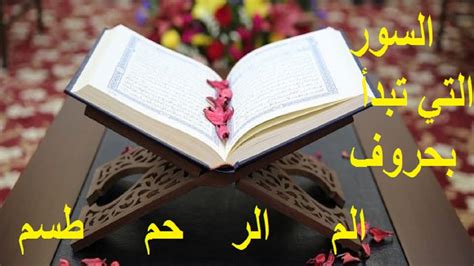 السور
التي تبدأ
بحروف
الم الر حم طسم